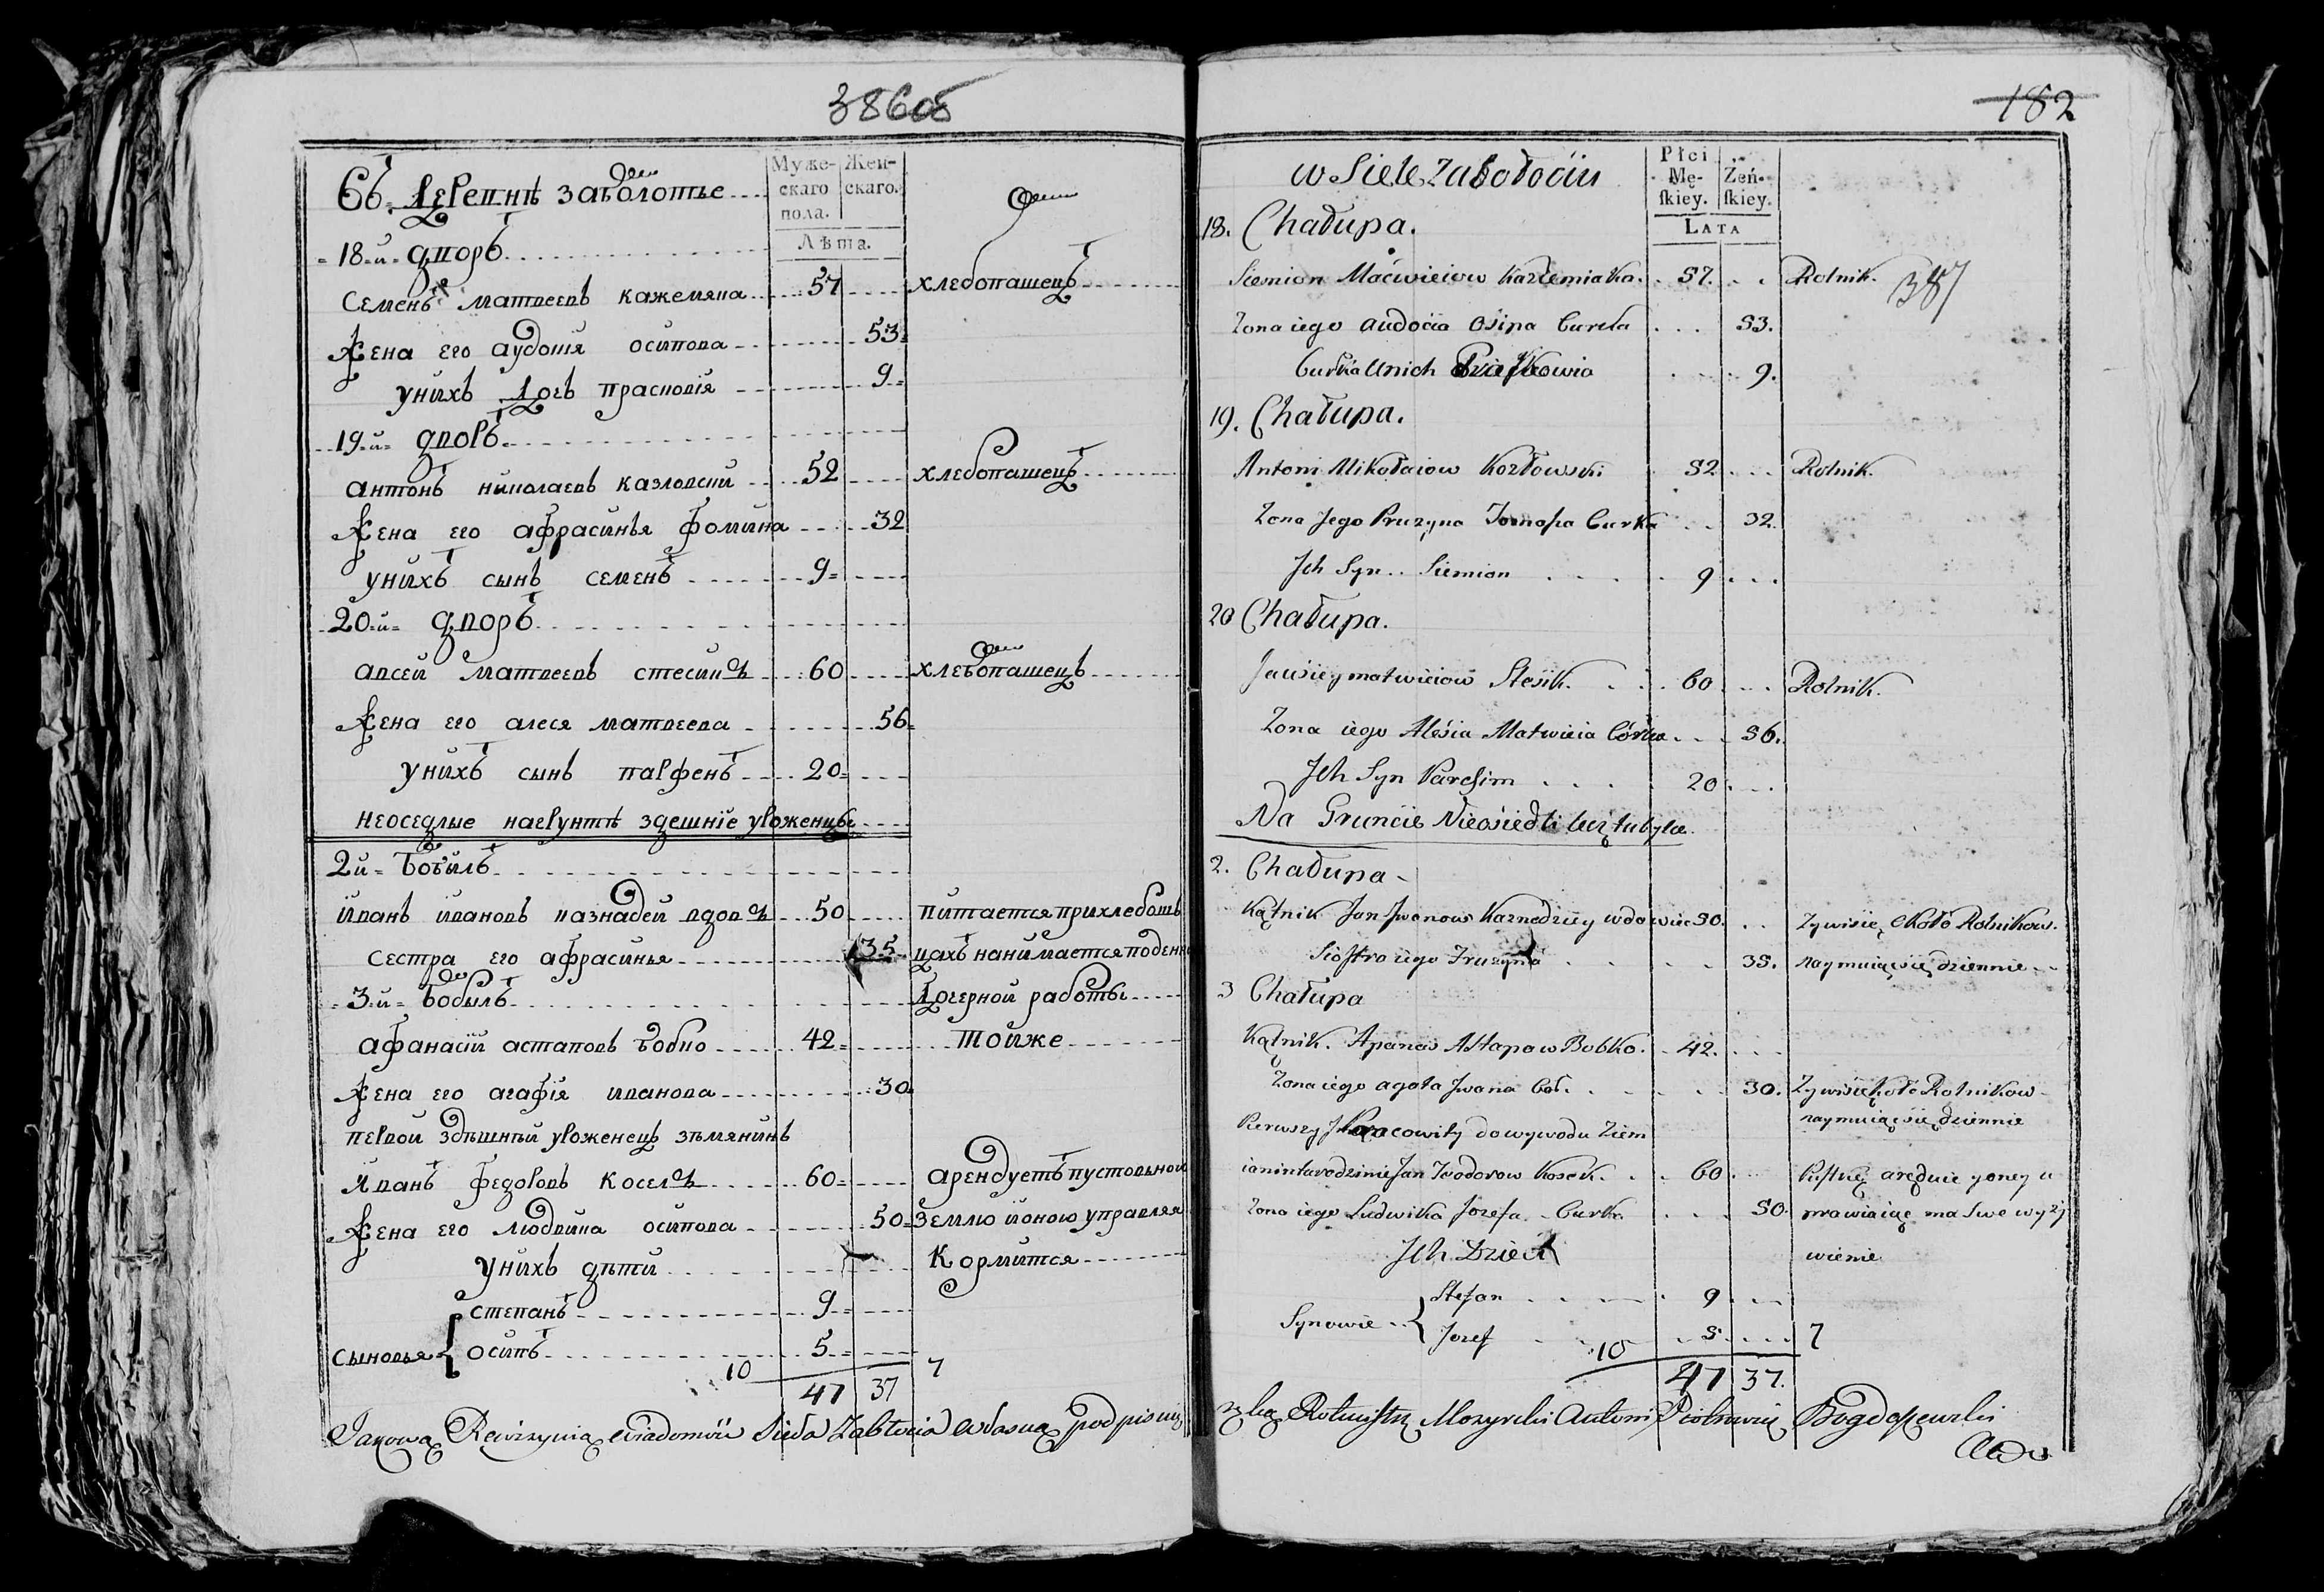 386об
Въ деревнѣ заболотье
Муже-
скаго
пола.
Жен-
скаго.
Лѣта.
18-й дворъ
Семенъ матвеевъ кажемяка 57 хлебопашецъ
Жена его аудотя осипова 53
унихъ дочь прасковія 9
19-й дворъ
антонъ николаевъ казловски 52 хлебопашецъ
Жена его афрасинья фомина 32
унихъ сынъ семенъ 9
20-й дворъ
авсей матвеевъ стесикъ 60 хлебопашецъ
Жена его алеся матвеева 56
унихъ сынъ парфенъ 20
неоседлые нагрунтѣ здешніе уроженцы
2й бобылъ
иванъ ивановъ казнадей вдовецъ 50 питается прихлебопаш
сестра его афрасинья 35 цахъ нанимается поденно
3-й бобылъ дочерной работы
афанасій астаповъ бобко 42 тоиже
Жена его агафія иванова 30
первой здѣшнѣй уроженецъ зѣмянинъ
иванъ федоровъ косекъ 60 арендуетъ пустовьной
Жена его людвика осипова 50 землю ионою управляя
унихъ дѣти кормится
сыновья степанъ 9
осипъ 5
10 7
47 37
182
w Siele Zabołociu
Płci
Mę-
ſkiey.
Żeń-
ſkiey.
LATA
18. Chałupa.
Siemion Maćwieiow Kazemiaka 57. Rolnik. 387
Zona iego Audocia Osipa Curka 53.
Curka Unich Praskowia 9.
19. Chałupa.
Antoni Mikołaiow Kozłowski 52 Rolnik.
Zona Jego Pruzyna Tomasza Curka 32.
Jch Syn Siemion 9
20 Chałupa.
Jawsiey matwieiow Stesik. 60 Rolnik.
Zona iego Alesia Matwieia Córka 56.
Jch Syn Parchim 20
Na Gruncie Nieosiedli lecz tubylce
2. Chałupa
Kątnik Jan Jwanow Kaznadziey wdowiec 50. Zywisię około Rolnikow.
Siostra iego Pruzyna 35. naymuiąc się dziennie
3 Chałupa
Kątnik. Apanas Astapow Bobko. 42.
Zona iego agata Jwana Cór. 30. Zywisię koło Rolnikow
naymuiąc się dziennie
Pierwszy Pracowity dowywodu Ziem
ianin Jan Teodorow Kosek. 60 Pustkę aręduie y oney u
Zona iego Ludwika Jozefa Curka 50. prawiaiąc ma swe wyzy
Jch Dzieci wienie
Synowie Stefan 9
Jozef 5 7
10
47 37.
Takową Rewizyina wiadomość Sieła Zabłocia własną podpisuię
ręką Rotmistrz Mozyrski Antoni Piotrowicz Bogdaszewski